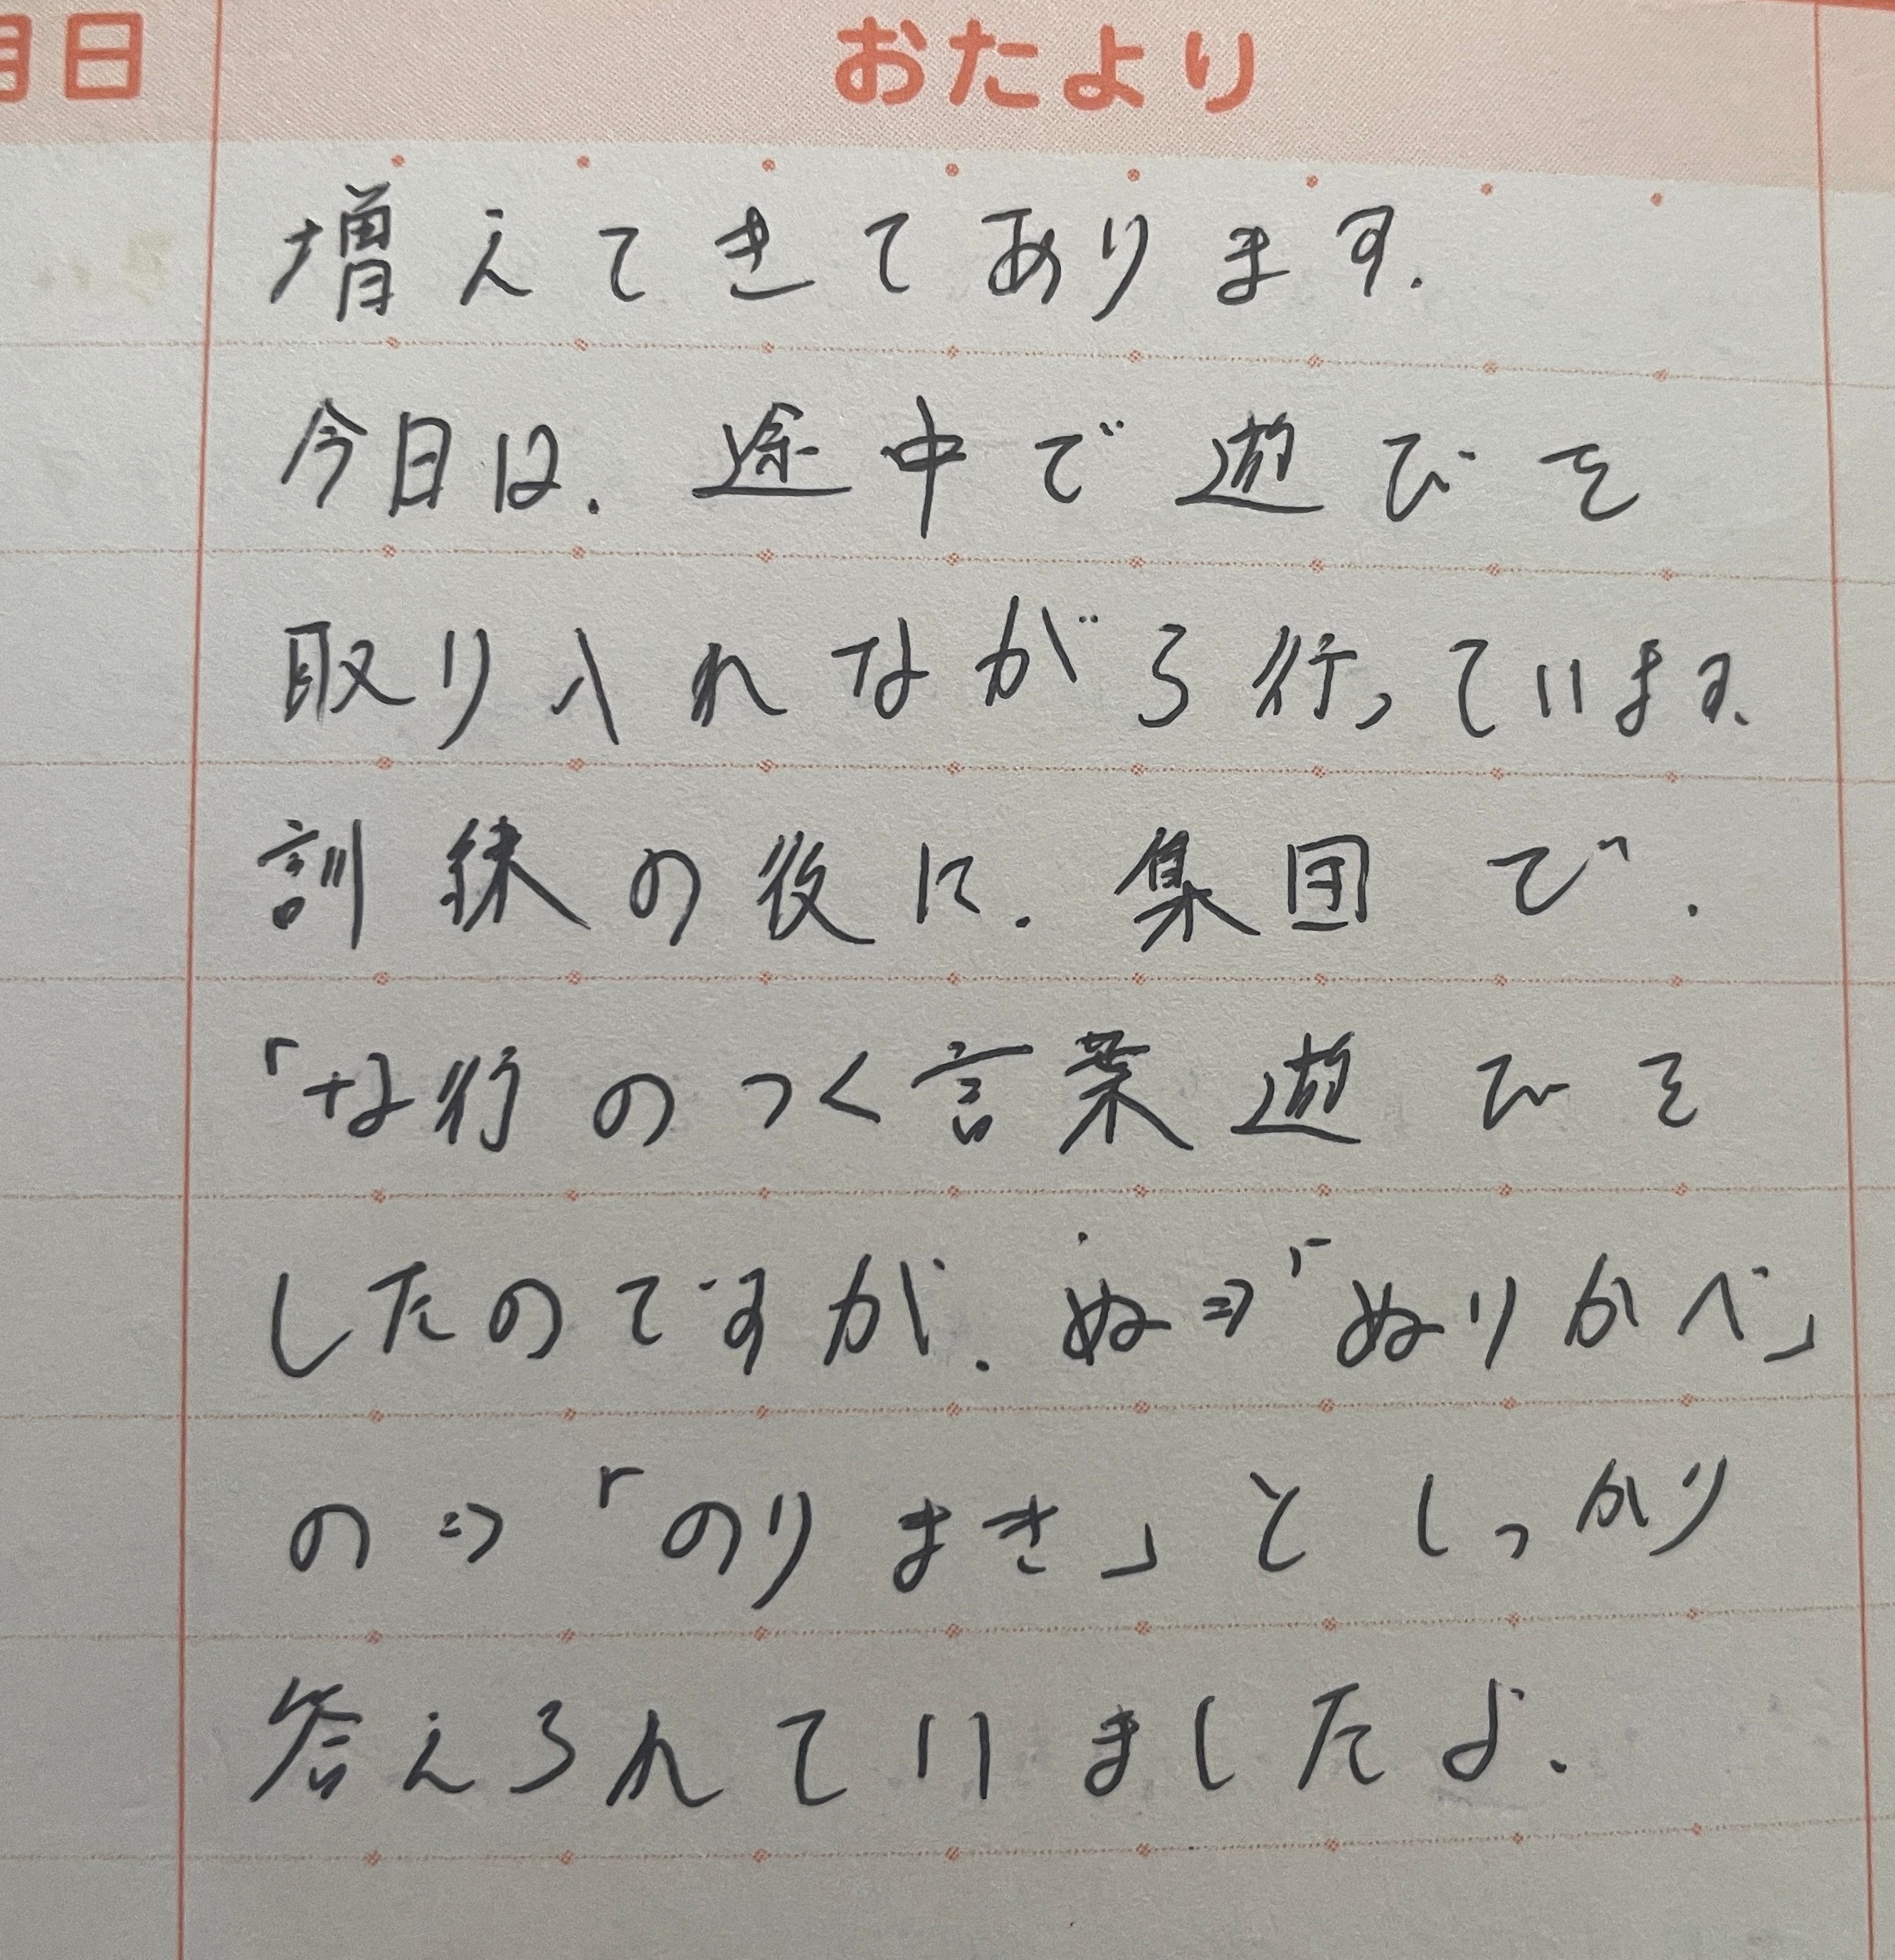 月日 おたより
増えてきてあります.
今日は. 途中で遊びを
取り入れながら行っています.
訓練の後に. 集団で.
「な行のつく言葉遊びを
したのですが. ぬ⇒「ぬりかべ」
の⇒「のりまき」としっかり
答えられていましたよ.